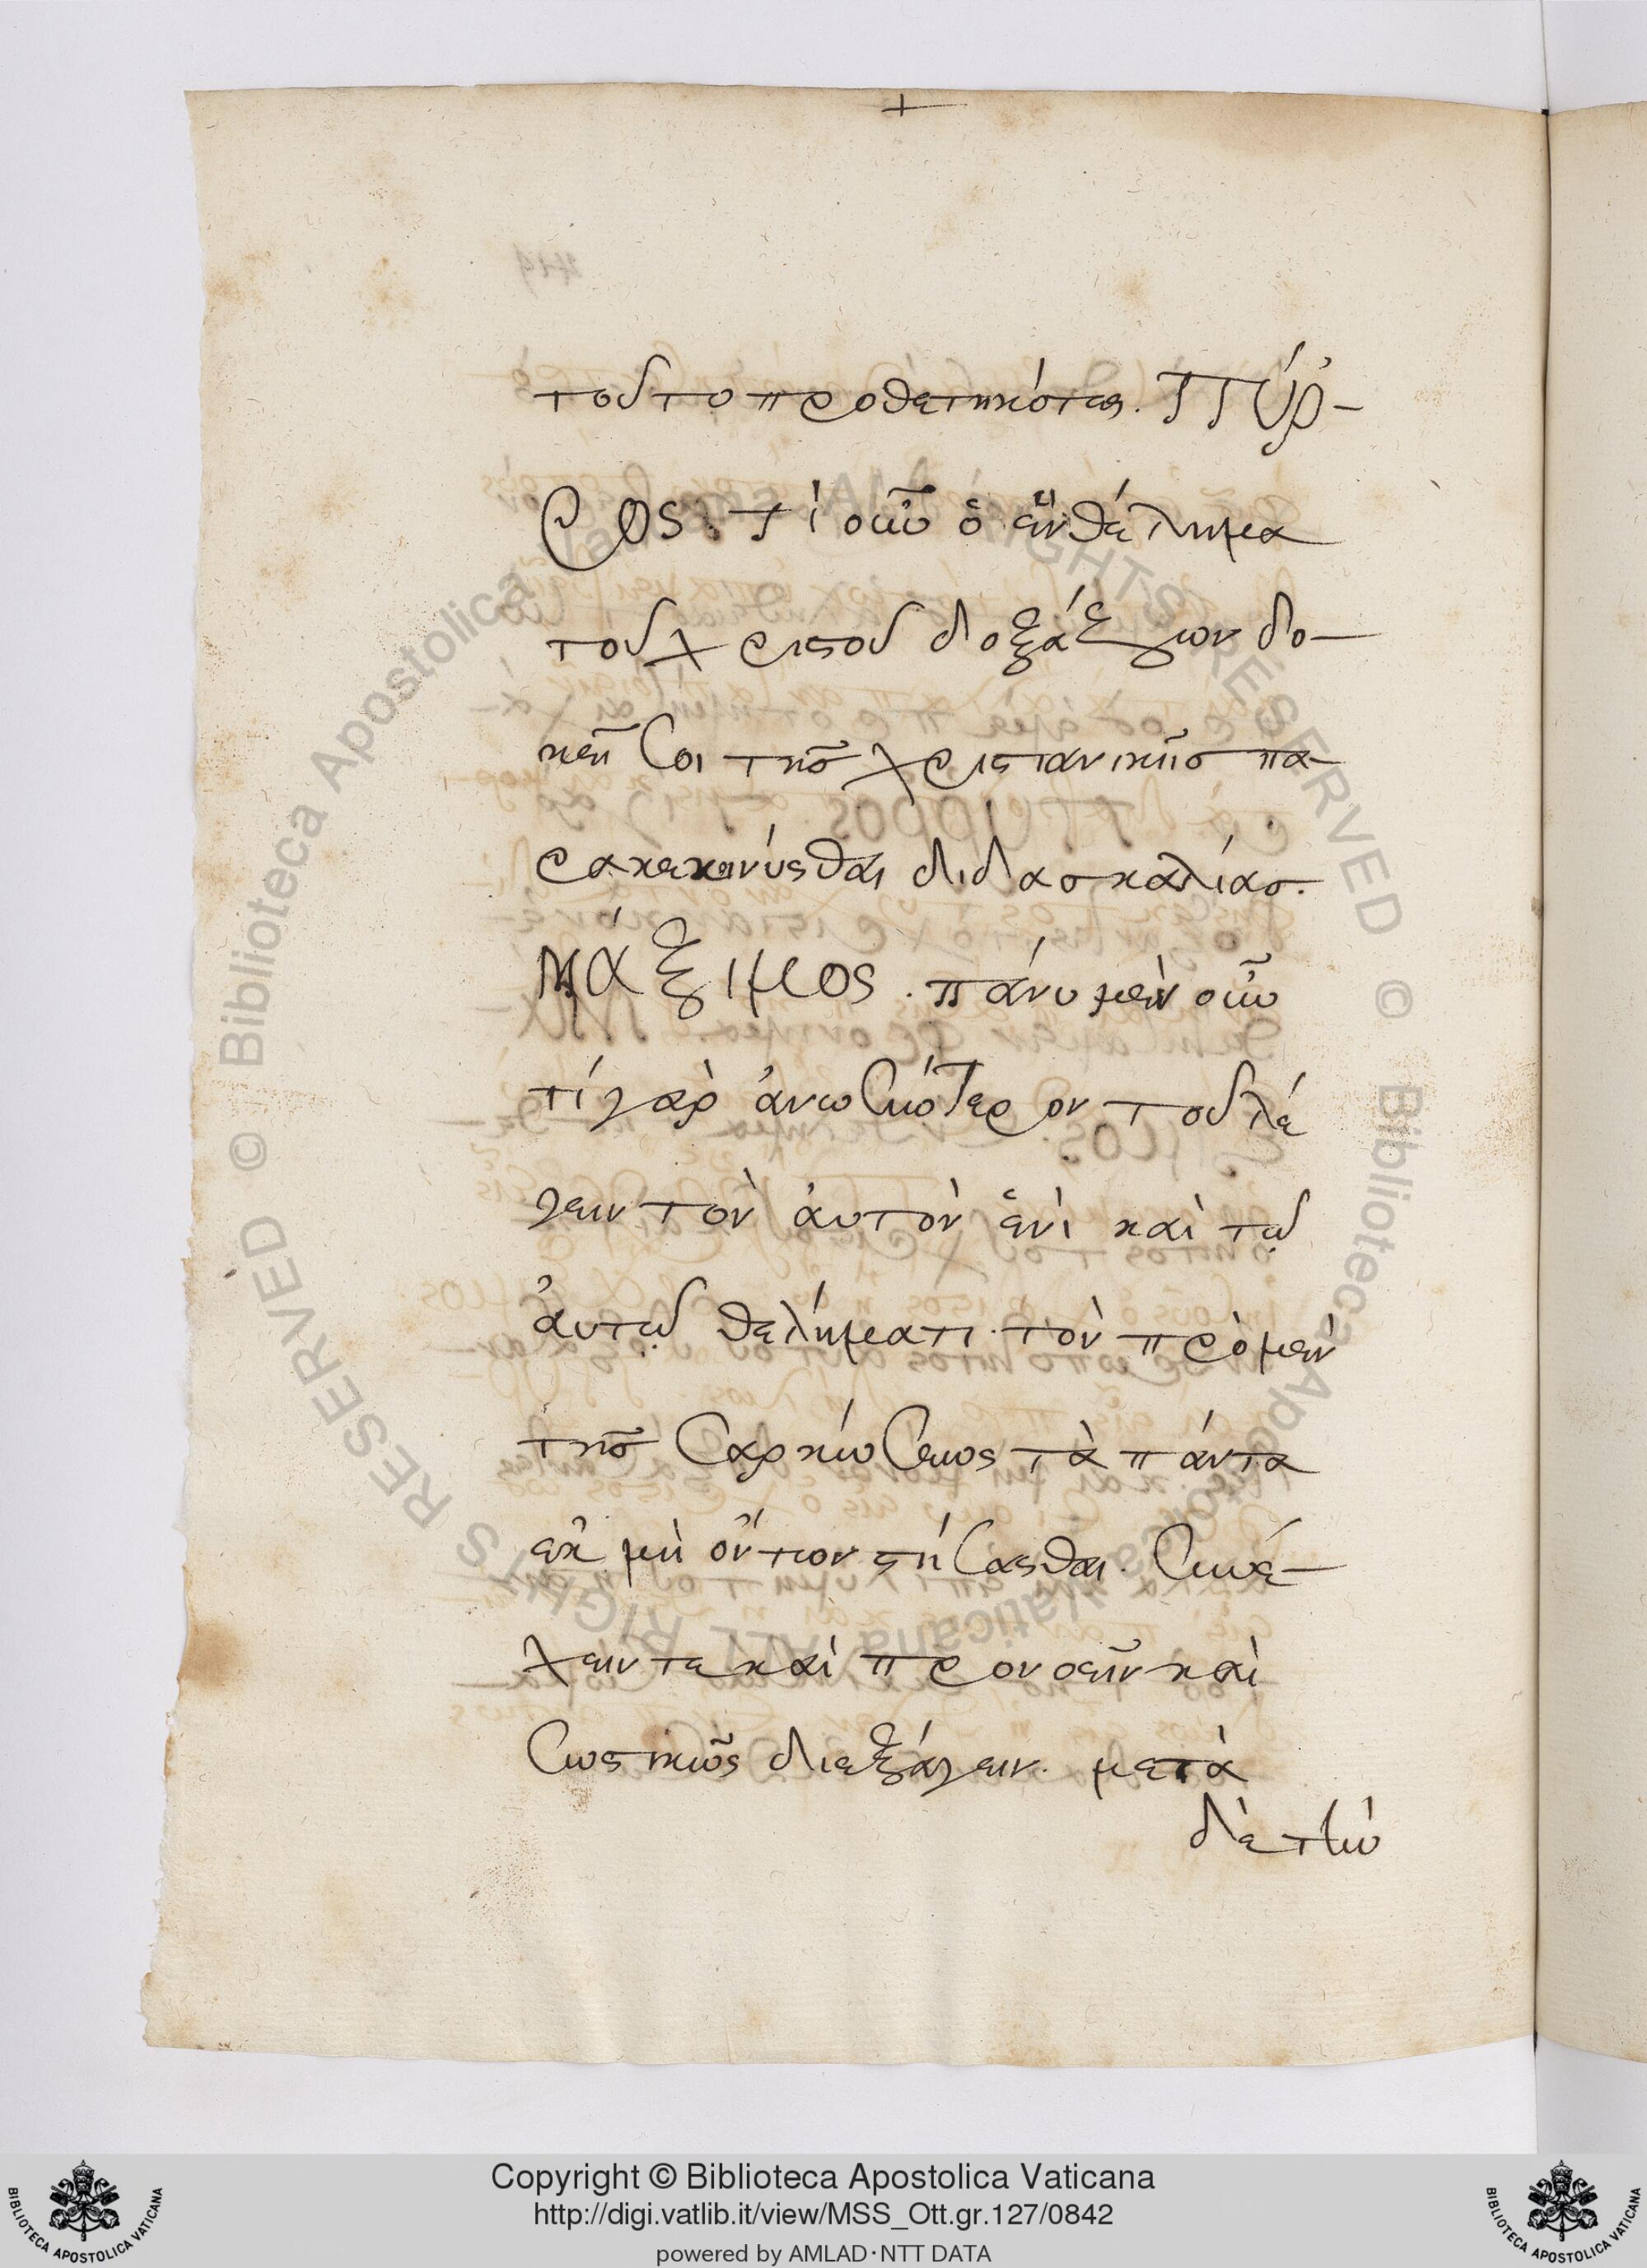 τοῦτο προθετικότες. ΠΎΡ-
ΡΟΣ. τί οὖν ὁ ἓν θέλημα
τοῦ χριστοῦ δοξάζων δο-
κεῖ σοι τῆς χριστανικῆς πα-
ρακεκινῆσθαι διδασκαλίας.
ΜΆΞΙΜΟΣ. πάνυ μὲν οὖν
τί γὰρ ἀνωσιότερον τοῦ λέ
γειν τὸν ἀυτὸν ἑνὶ καὶ τῷ
ἀυτῷ θελήματι. τὸν πρὸ μὲν
τῆς σαρκώσεως τὰ πάντα
ἐκ μὴ ὄντων στήσασθαι. συνέ-
χειν τε καὶ προνοεῖν καὶ
σωστικῶς διεξάγειν. μετὰ
δὲ τὴν
Copyright © Biblioteca Apostolica Vaticana
http://digi.vatlib.it/view/MSS_Ott.gr.127/0842
powered by AMLAD·NTT DATA
BIBLIOTECA APOSTOLICA VATICANA
BIBLIOTECA APOSTOLICA VATICANA
© Biblioteca Apostolica Vaticana ALL RIGHTS RESERVED
© Biblioteca Apostolica Vaticana ALL RIGHTS RESERVED